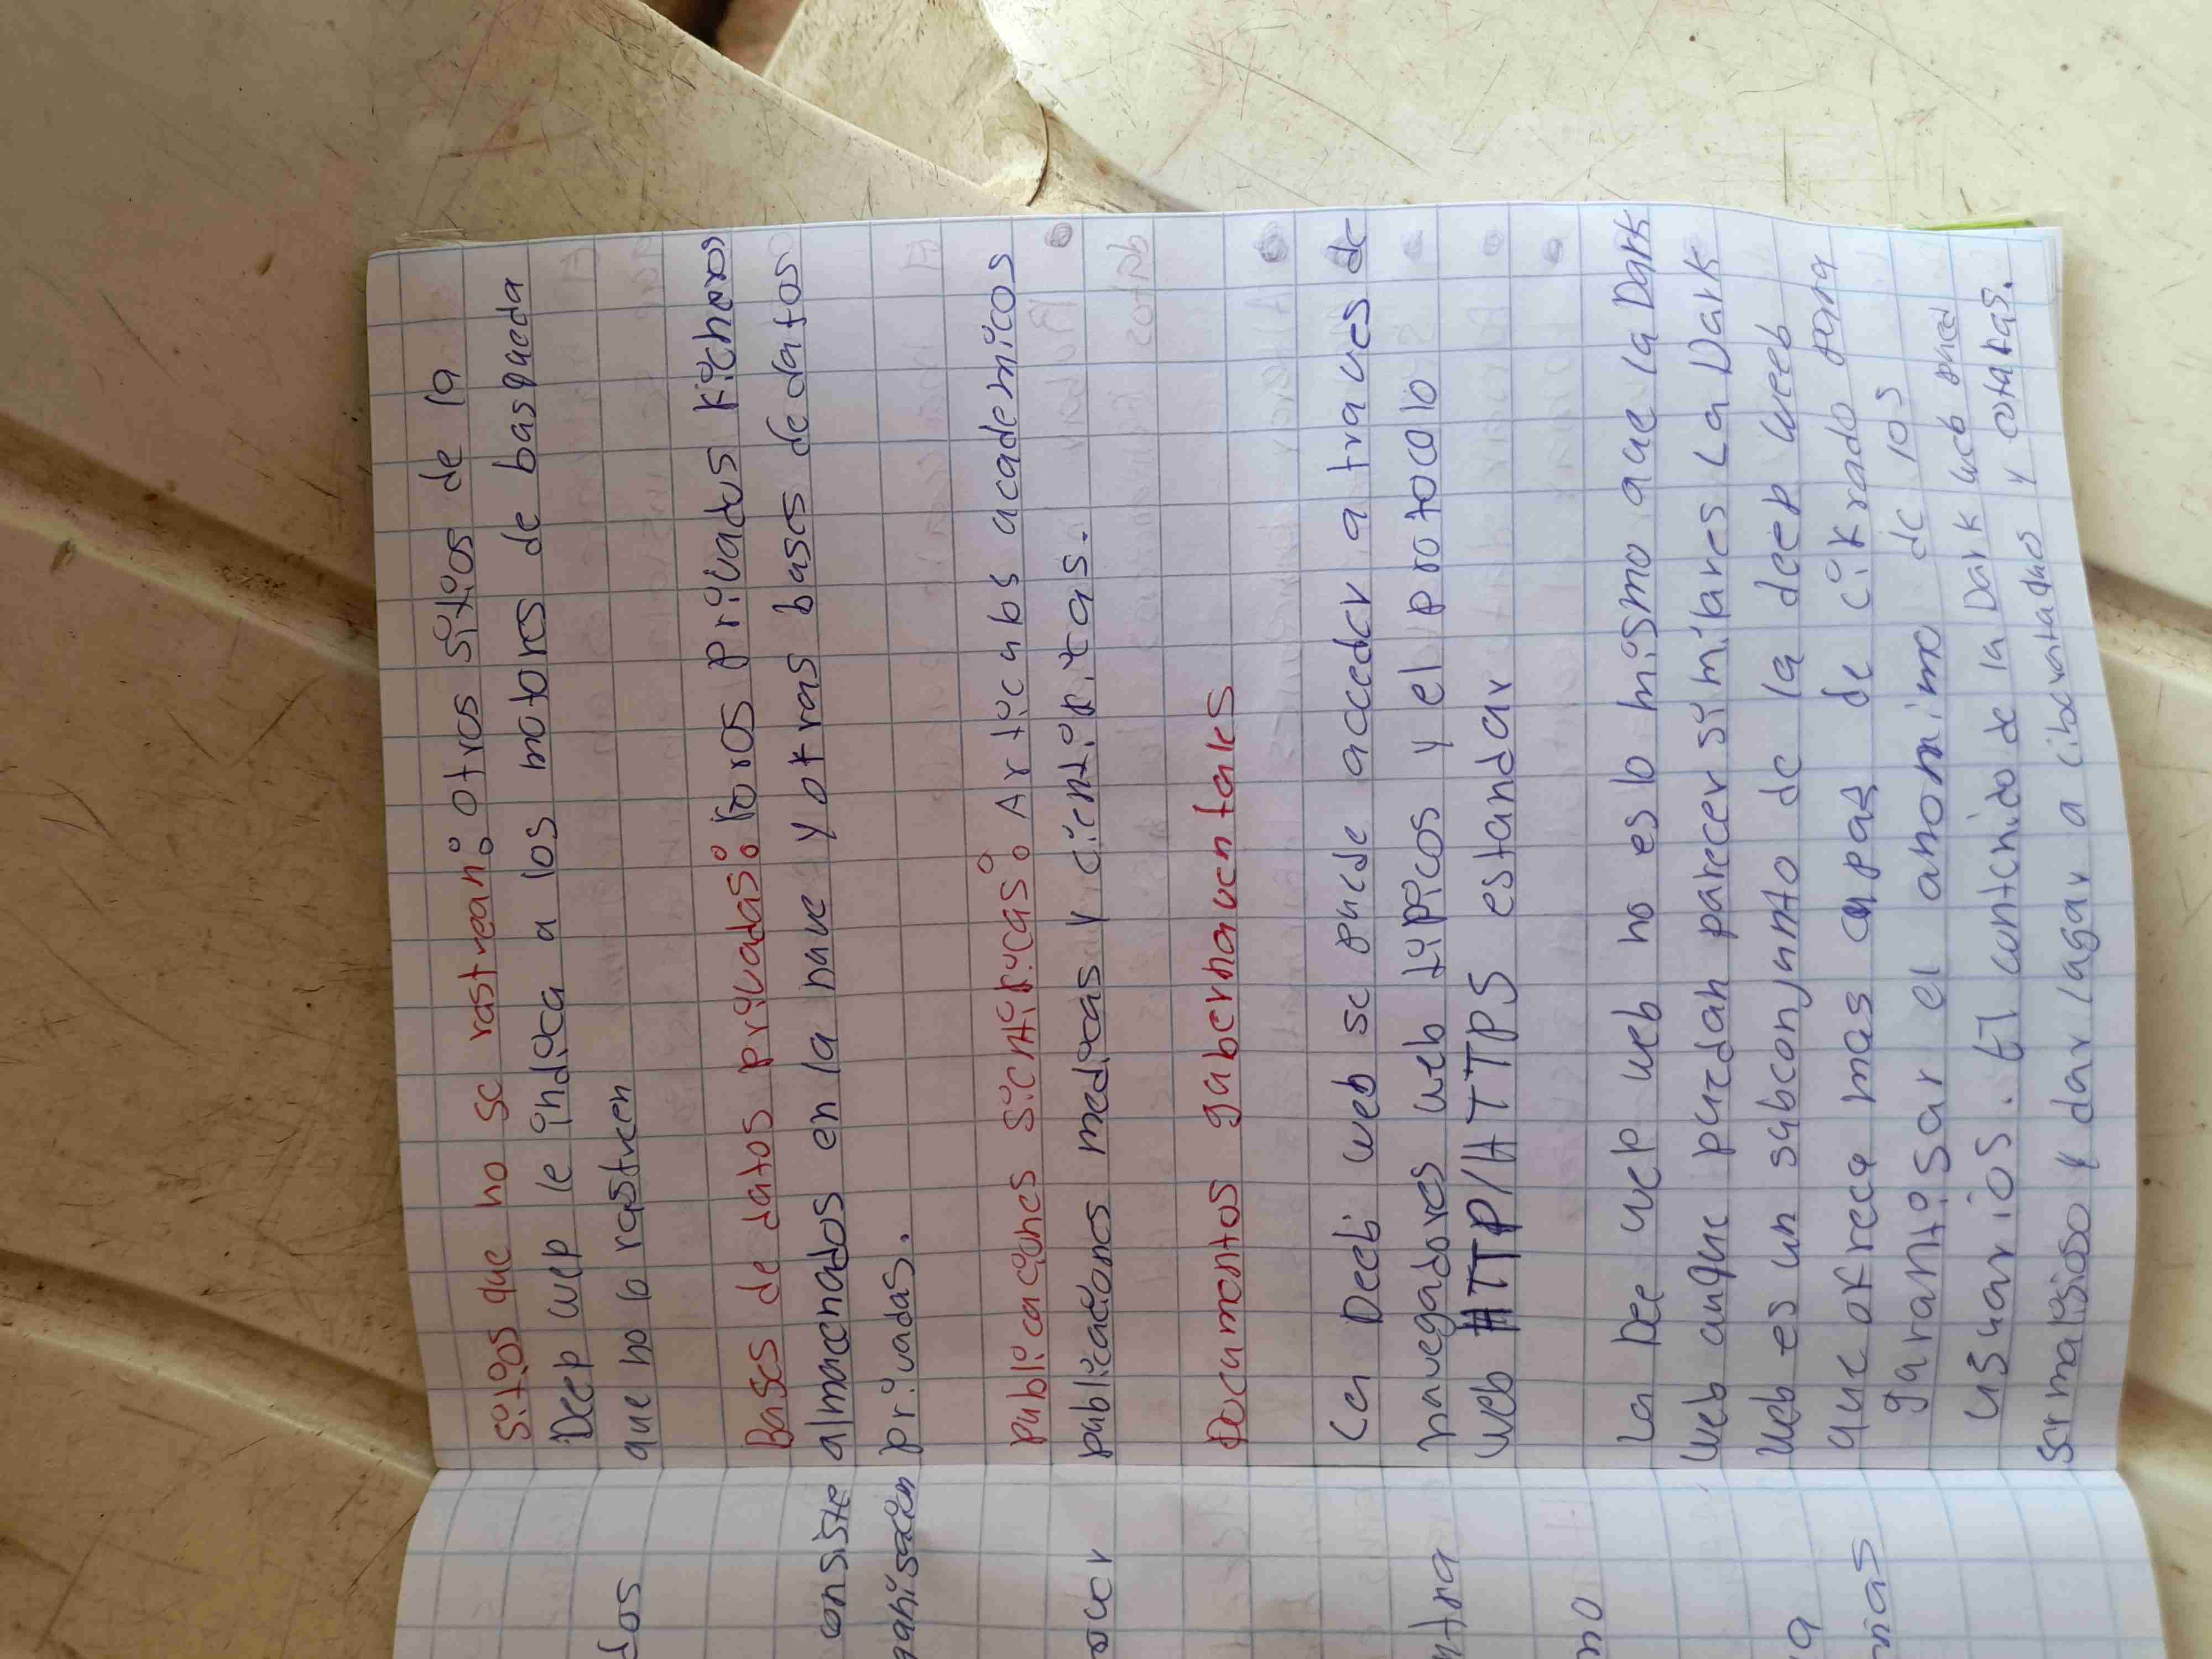 Sitios que no se rastrean: otros sitios de la
Deep wep le indica a los motores de basqueda
que no lo rastreen
Bases de datos privadas: Foros privados Kicheros
almacenados en la nuve y otras bases de datos
privadas.
publicaciones sientipicas: Articulos academicos
publicaciones medicas y cientipitcas.
Documentos gabernauentales
La Deeb web se puede acceder a traves de
navegadores web tipicos y el protocolo
web HTTP/HTTPS estandar
La Dee wep web no es lo mismo que la Dark
web auque puedan parecer similares La Dark
web es un subconjunto de la deep weeb
que ofrece mas capas de cifrado para
garantisar el anonimo de los
usuarios. El contenido de la Dark web pued
ser malisioso y dar lugar a y otafas.
dos
consiste
ganisacion
ouer
ntra
no
a
nias